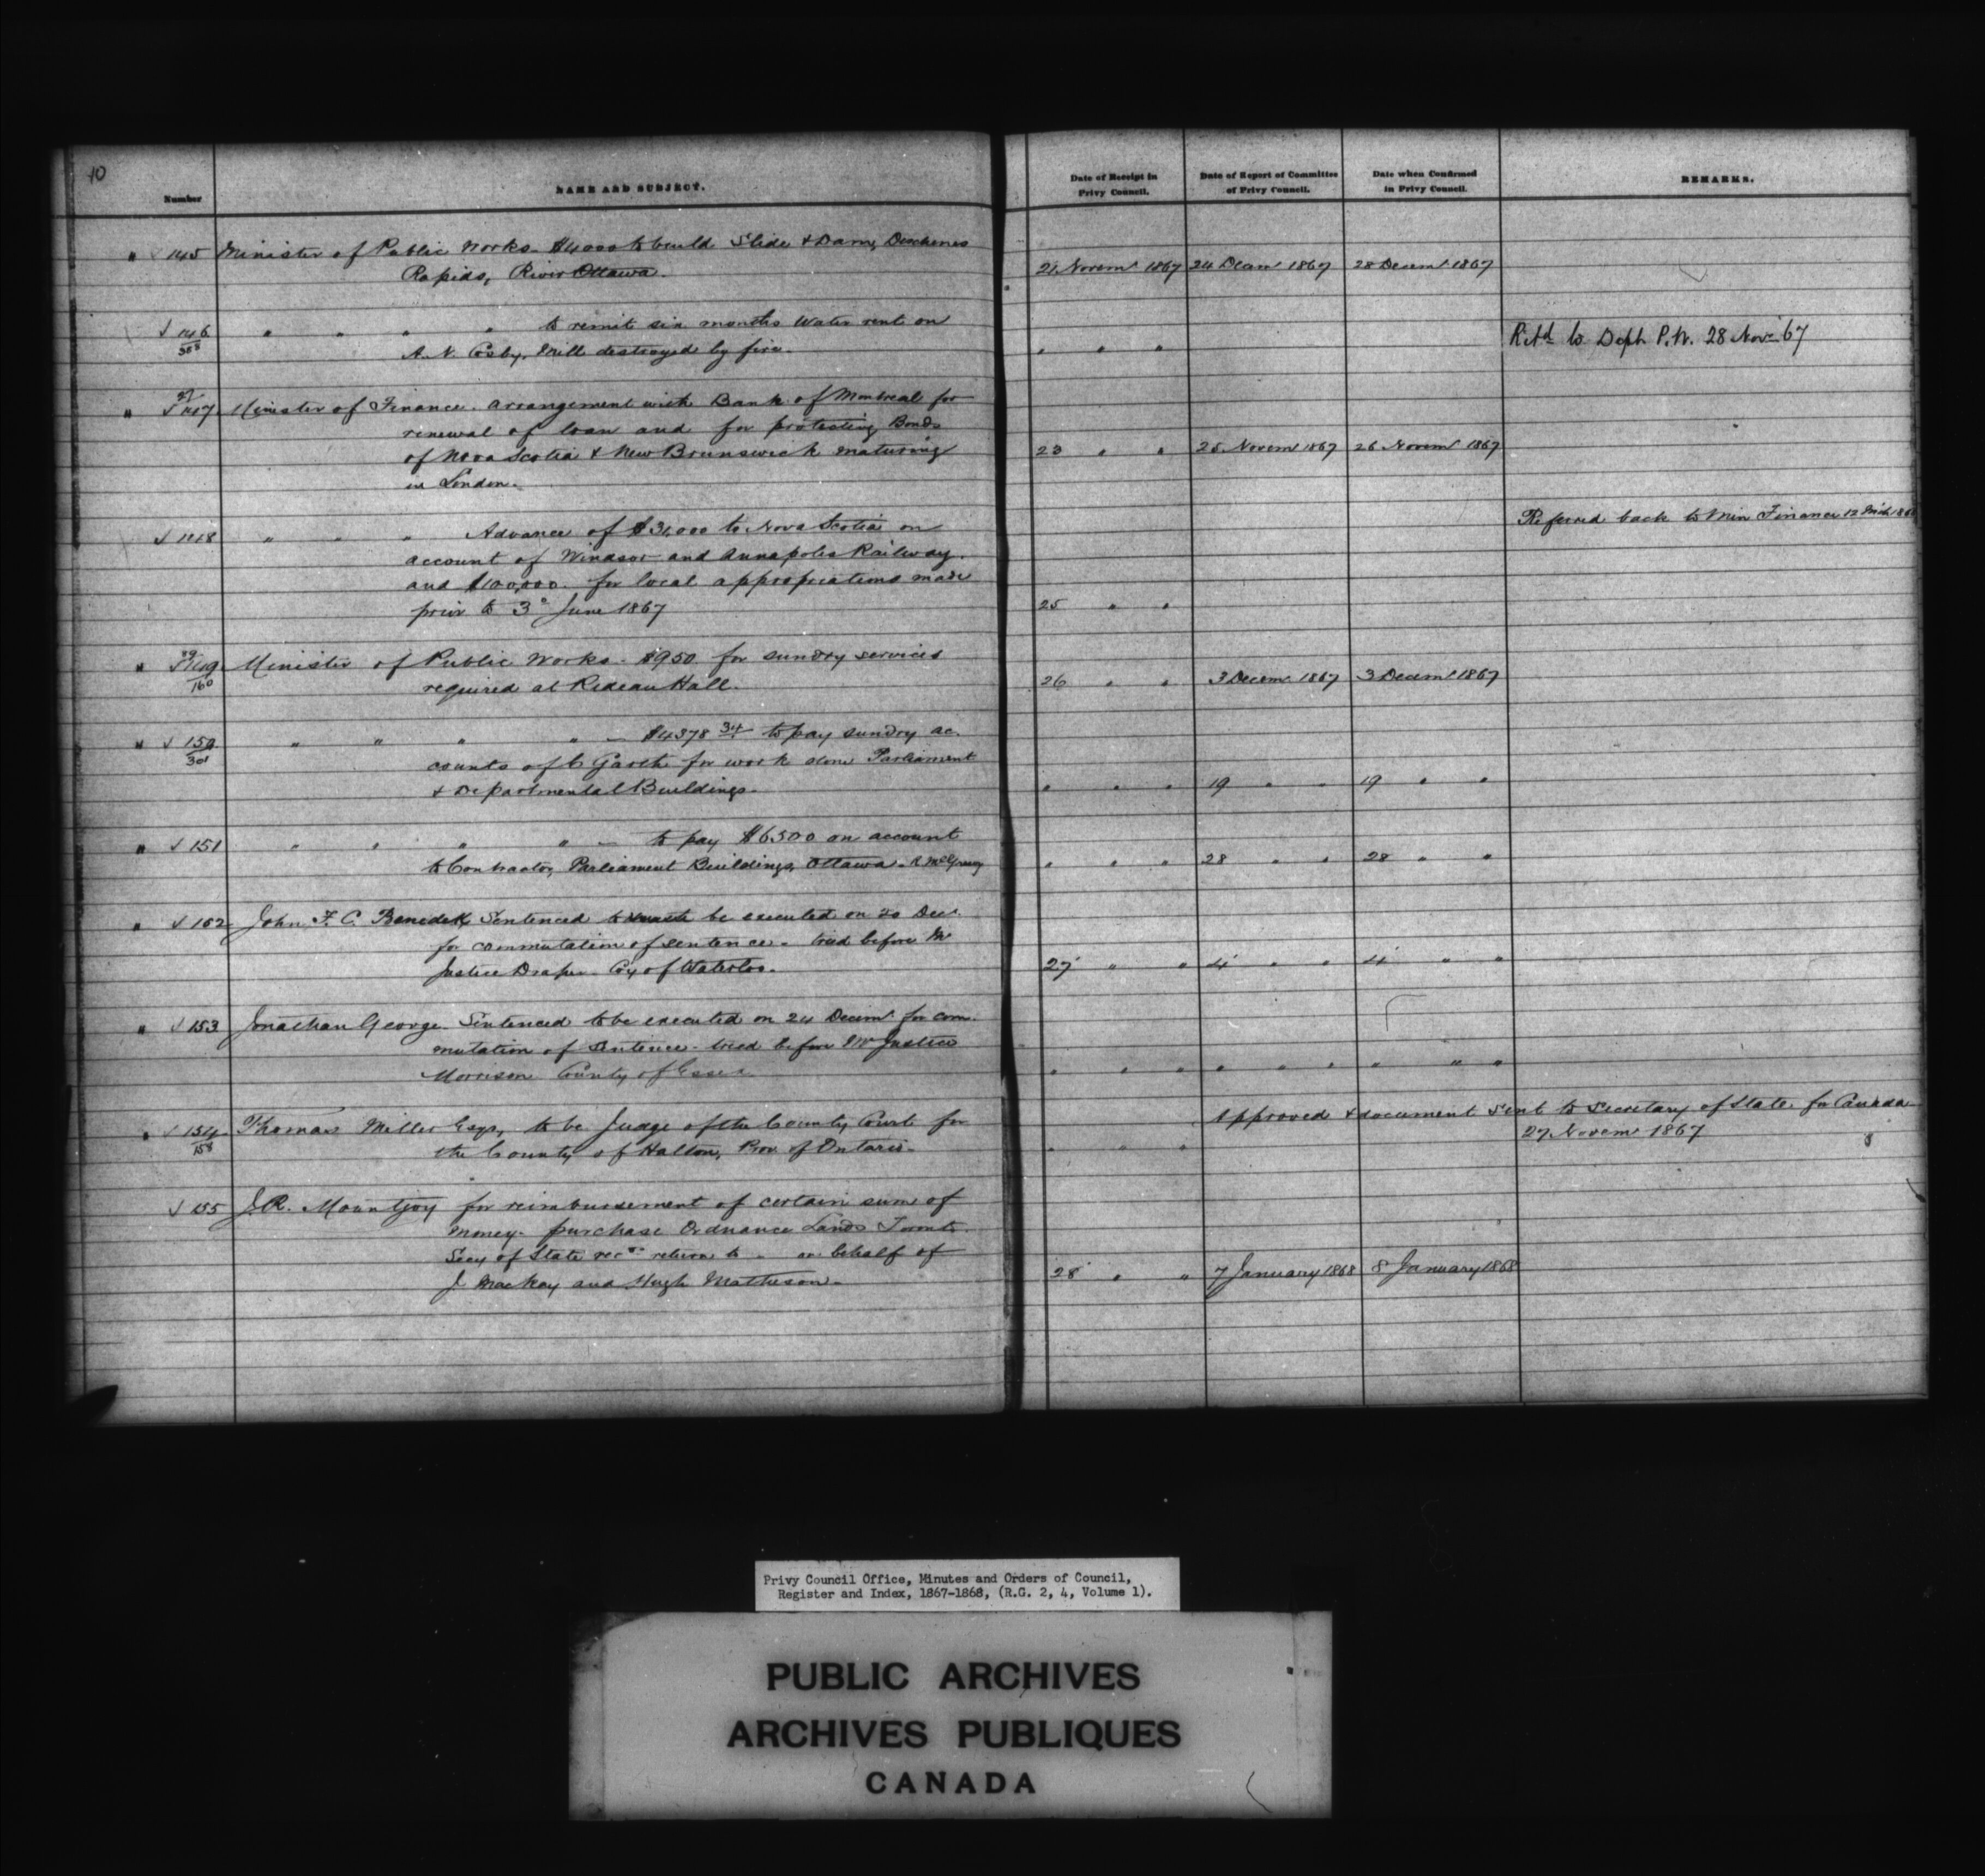 10
Number NAME AND SUBJECT. Date of Receipt in Privy Council. Date of Report of Committee of Privy Council. Date when Confirmed in Privy Council. REMARKS.
" 145 Minister of Public Works - $4000 to build Slide & Dam, Deschenes
Rapids, River Ottawa. 21 Novem 1867 24 Decem 1867 28 Decem 1867
√ 146 " " " " to remit six months Water rent on
388 A. N. Cosby, Mill destroyed by fire. " " " Retd to Dept P.W. 28 Nov 67
" √ 147 Minister of Finance. arrangement with Bank of Montreal for
renewal of loan and for protecting Bonds
of Nova Scotia & New Brunswick maturing 23 " " 25 Novem 1867 26 Novem 1867
in London.
Referred back to Min Finance 12 Mch
√ 148 " " " Advance of $31,000 to Nova Scotia on
account of Windsor and Annapolis Railway.
and $100,000. for local appropriations made
prior to 3d June 1867 25 " "
" √ 149 Minister of Public Works - $950 for sundry services
160 required at Rideau Hall. 26 " " 3 Decem 1867 3 Decem 1867
" √ 150 " " " " — $4378 34 to pay sundry ac-
301 counts of C Garth for work done Parliament
& Departmental Buildings. " " " 19 " " 19 " "
" √ 151 " " " " — to pay $6500 on account
to Contractor, Parliament Buildings, Ottawa - " " " 28 " " 28 " "
" √ 152 John F. C. Benedek Sentenced to be executed on 20 Decr
for commutation of sentence - tried before Mr
Justice Draper - Coy of Waterloo. 27 " " 4 " " 4 " "
" √ 153 Jonathan George Sentenced to be executed on 24 Decem for com-
mutation of sentence - tried before Mr Justice
Morrison County of Essex " " " " " " " " "
" √ 154 Thomas Miller Esqr, to be Judge of the County Court for Approved & document sent to Secretary of State for Canada
158 the County of Halton, Prov. of Ontario. " " " 27 Novem 1867
√ 155 J.R. Mountjoy for reimbursement of certain sum of
money - purchase Ordnance Lands Toronto.
Secy of State return to - on behalf of
J MacKay and Hugh Matheson. 28 " " 7 January 1868 8 January 1868
Privy Council Office, Minutes and Orders of Council,
Register and Index, 1867-1868, (R.G. 2, 4, Volume 1).
PUBLIC ARCHIVES
ARCHIVES PUBLIQUES
CANADA